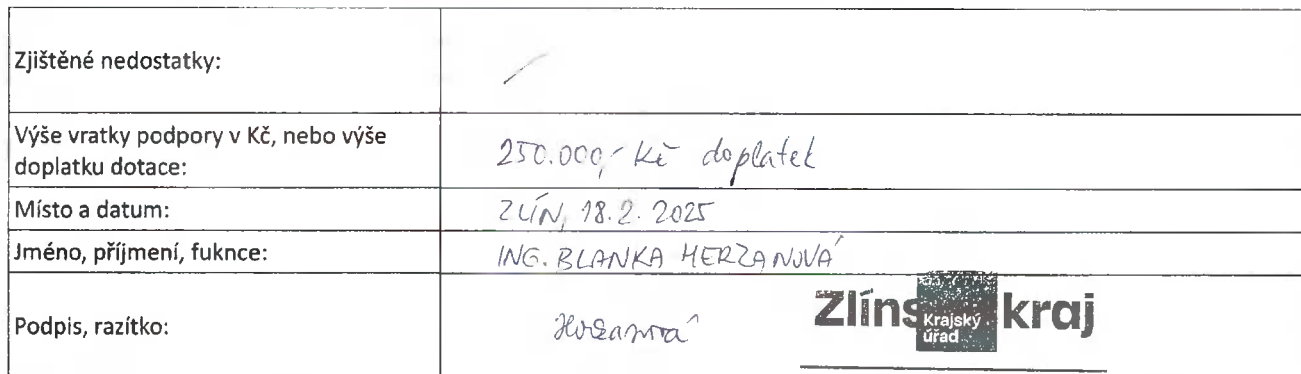 Zjištěné nedostatky: /
Výše vratky podpory v Kč, nebo výše
doplatku dotace:
250.000,- Kč doplatek
Místo a datum: ZLÍN, 18.2.2025
Jméno, příjmení, fuknce: ING. BLANKA HERZANOVÁ
Podpis, razítko:
Zlínský kraj
Krajský
úřad